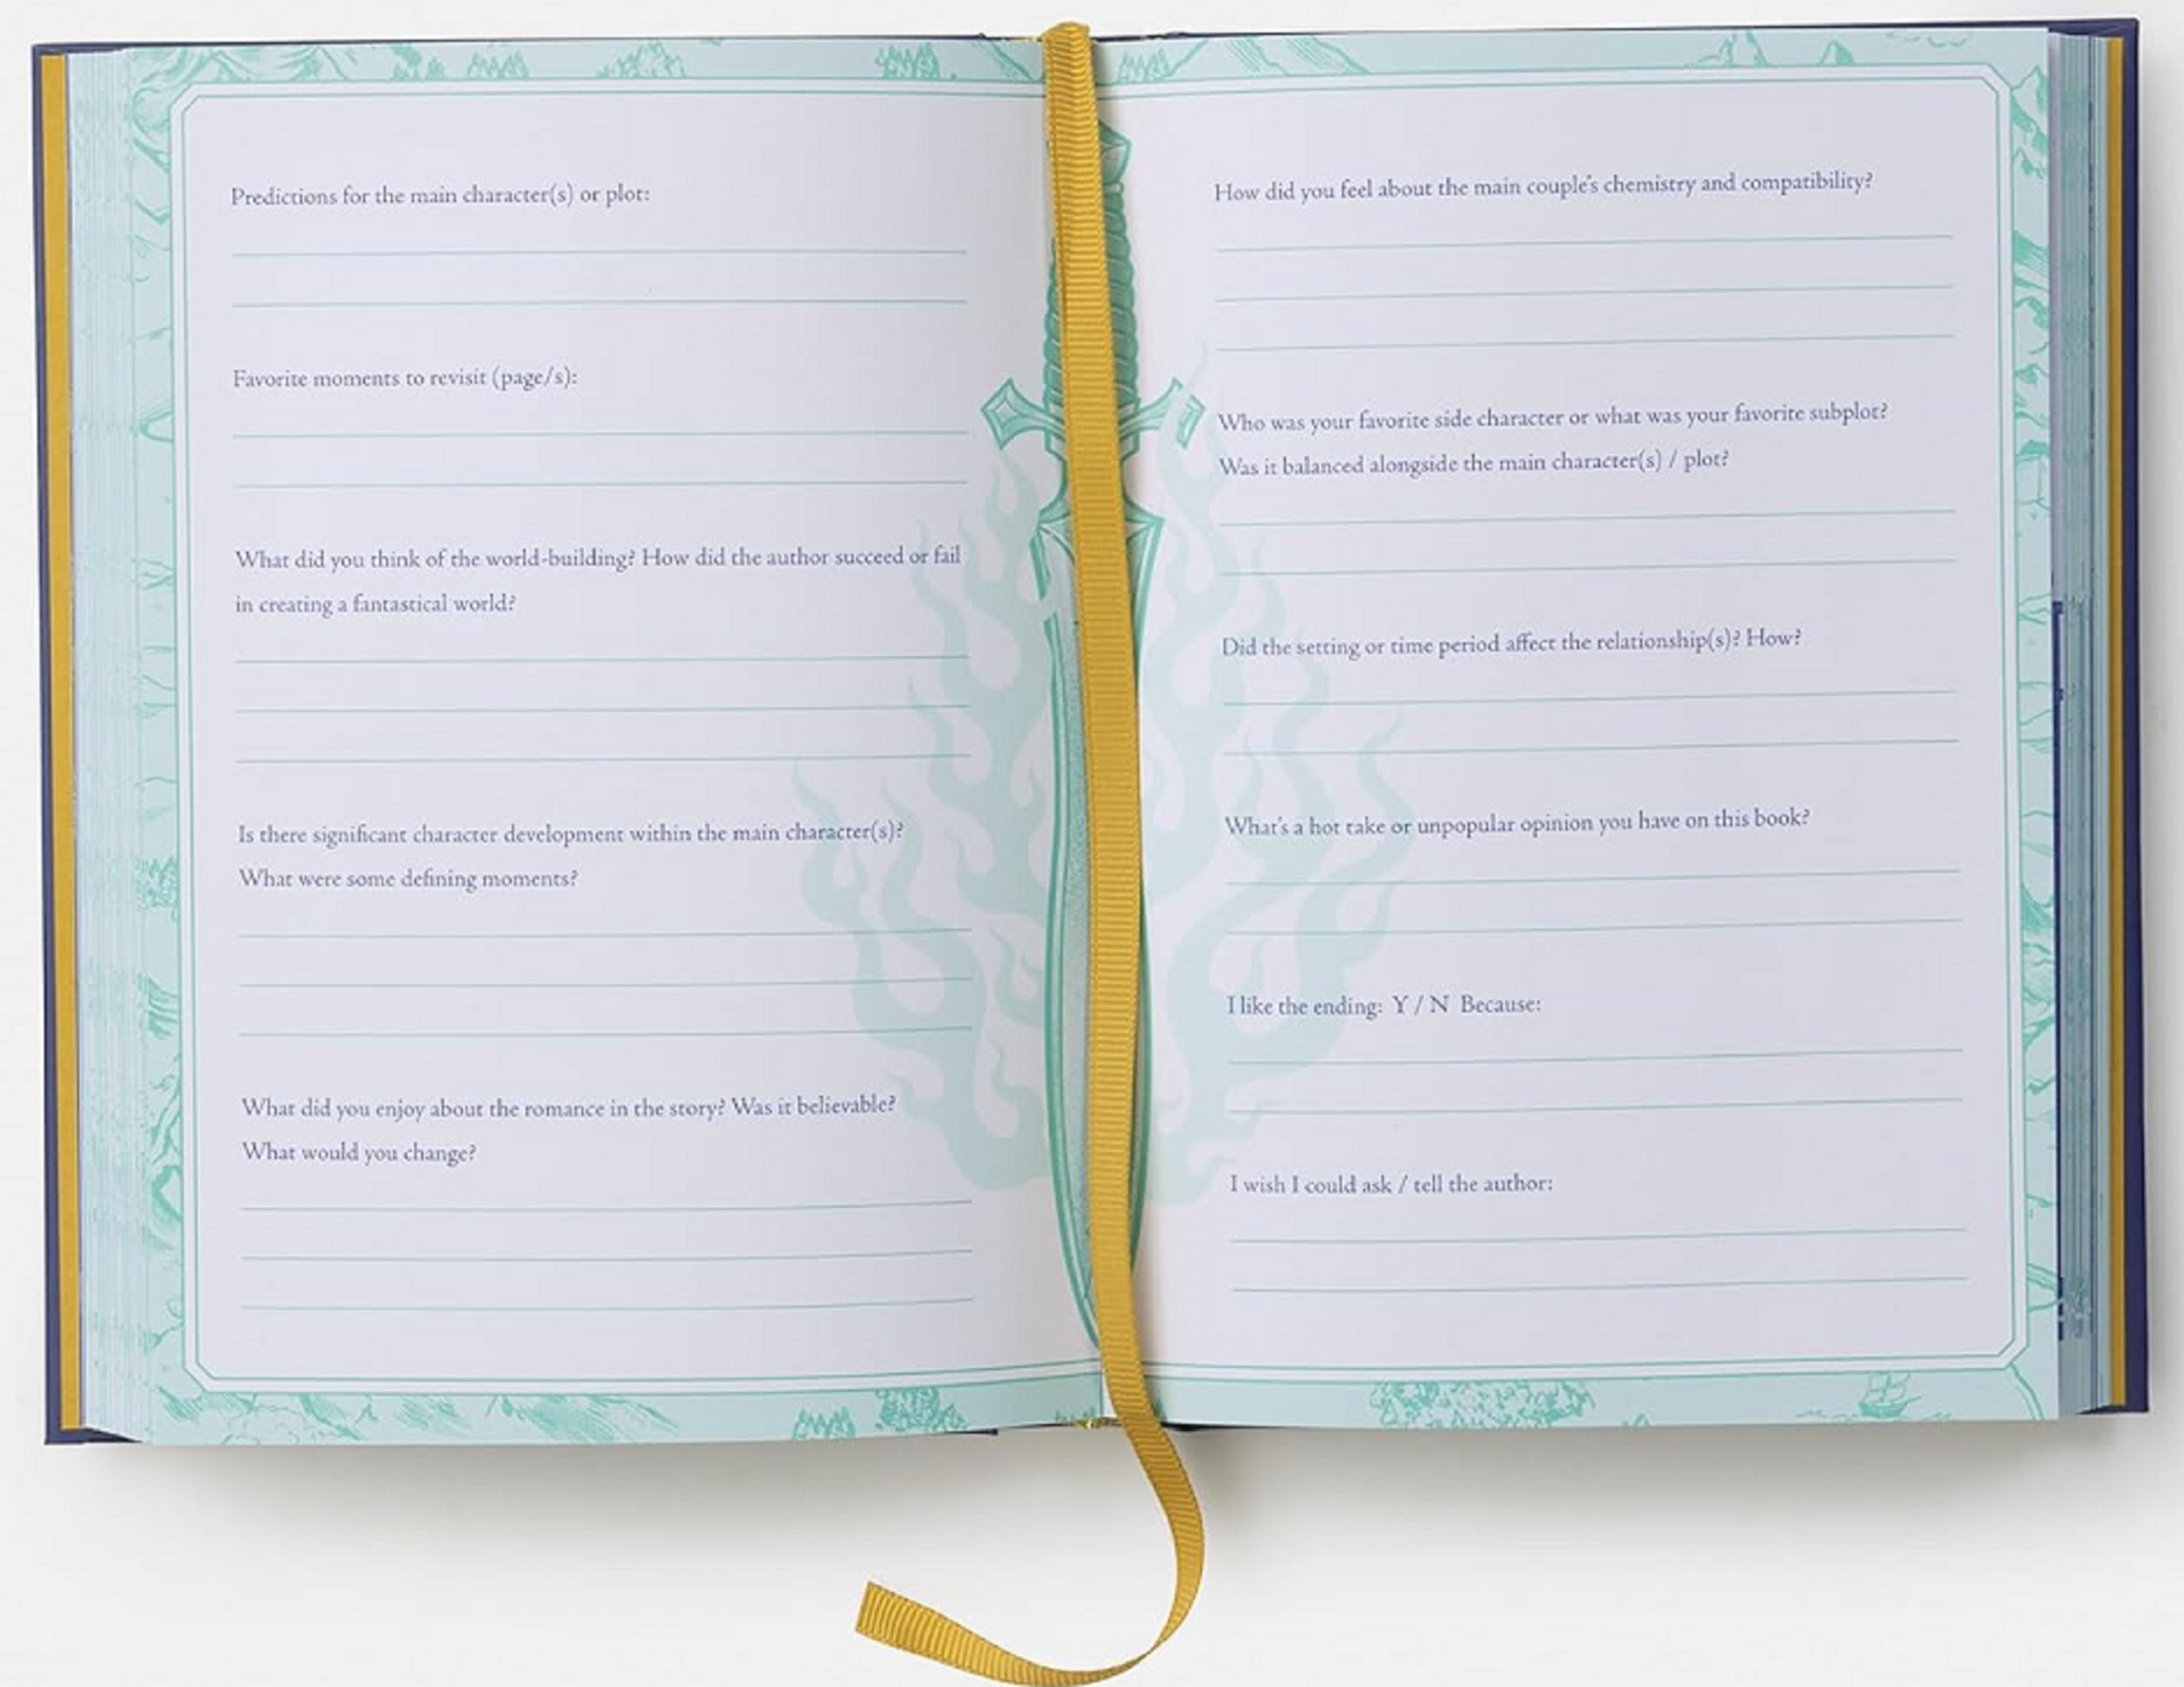 Predictions for the main character(s) or plot:
Favorite moments to revisit (page/s):
What did you think of the world-building? How did the author succeed or fail
in creating a fantastical world?
Is there significant character development within the main character(s)?
What were some defining moments?
What did you enjoy about the romance in the story? Was it believable?
What would you change?
How did you feel about the main couple's chemistry and compatibility?
Who was your favorite side character or what was your favorite subplot?
Was it balanced alongside the main character(s) / plot?
Did the setting or time period affect the relationship(s)? How?
What's a hot take or unpopular opinion you have on this book?
I like the ending: Y / N Because:
I wish I could ask / tell the author: